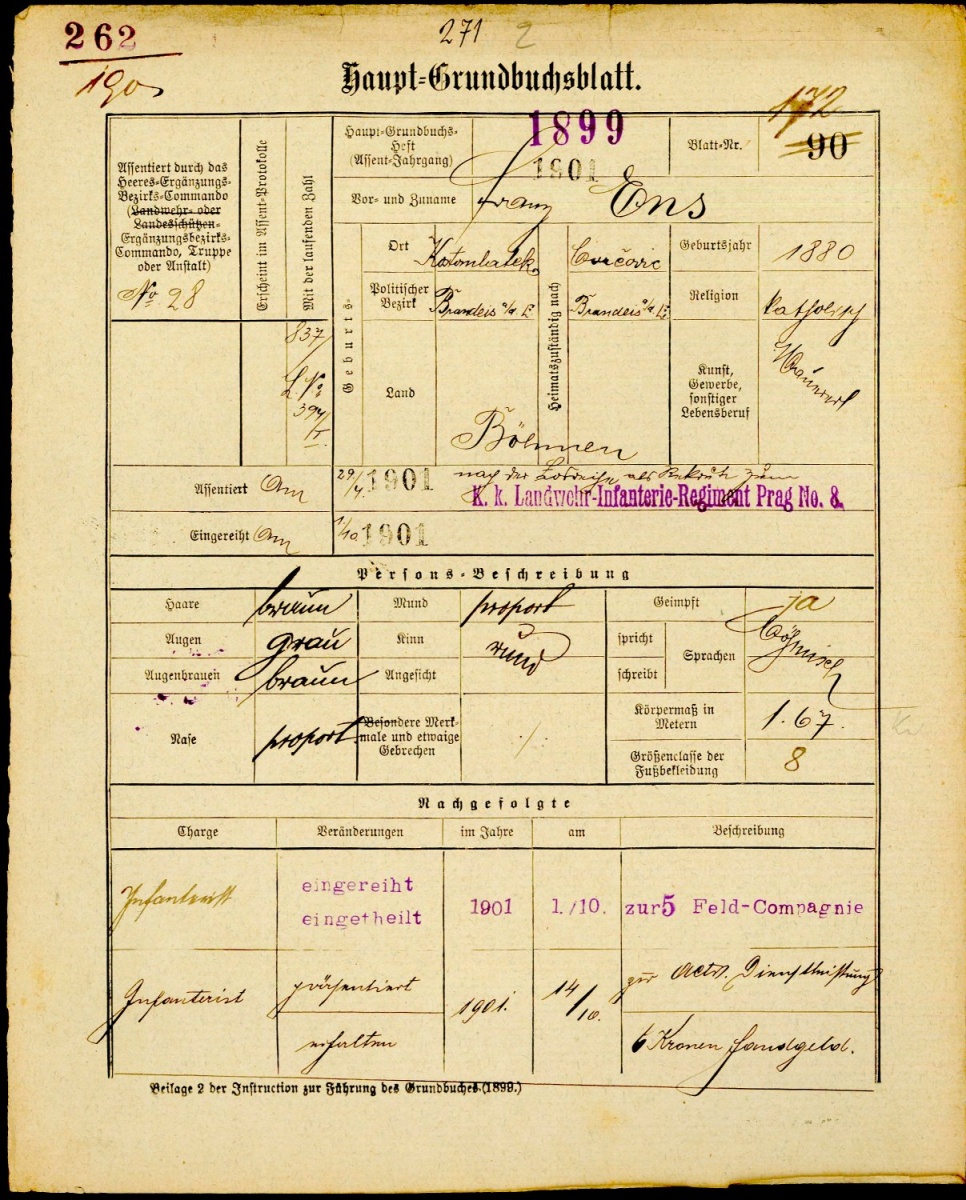 262
190
271 2
Haupt-Grundbuchsblatt.
Assentiert durch das
Heeres-Ergänzungs-
Bezirks-Commando
(Landwehr- oder
Landesschützen-
Ergänzungsbezirks-
Commando, Truppe
oder Anstalt)
No 28
Erscheint im Assent-Protokolle
Mit der laufenden Zahl
837
Haupt-Grundbuchs-
Heft
(Assent-Jahrgang)
1899
1901
Blatt-Nr.
172
90
Vor- und Zuname
Franz Ens
Geburts-
Ort
Heimatszuständig nach
Geburtsjahr
1880
Politischer
Bezirk
Brandeis a/d E
Brandeis a/d E
Religion
katholisch
Land
Böhmen
Kunst,
Gewerbe,
sonstiger
Lebensberuf
Assentiert Am
29/4. 1901
nach der Losreihe als Rekrut zum
K. k. Landwehr-Infanterie-Regiment Prag No. 8.
Eingereiht Am
1/10 1901
Persons-Beschreibung
Haare braun
Mund proport
Geimpft ja
Augen grau
Kinn
rund
spricht
schreibt
Sprachen
böhmisch
Augenbrauen braun
Angesicht
Nase proport.
Besondere Merk-
male und etwaige
Gebrechen
/
Körpermaß in
Metern
1.67.
Größenclasse der
Fußbekleidung
8
Nachgefolgte
Charge Veränderungen im Jahre am Beschreibung
Infanterist
eingereiht
eingetheilt
1901 1./10. zur 5 Feld-Compagnie
Infanterist
präsentiert
1901. 14/10.
zur activ. Dienstleistung
erhalten
6 Kronen Handgeld.
Beilage 2 der Instruction zur Führung des Grundbuches (1899.)